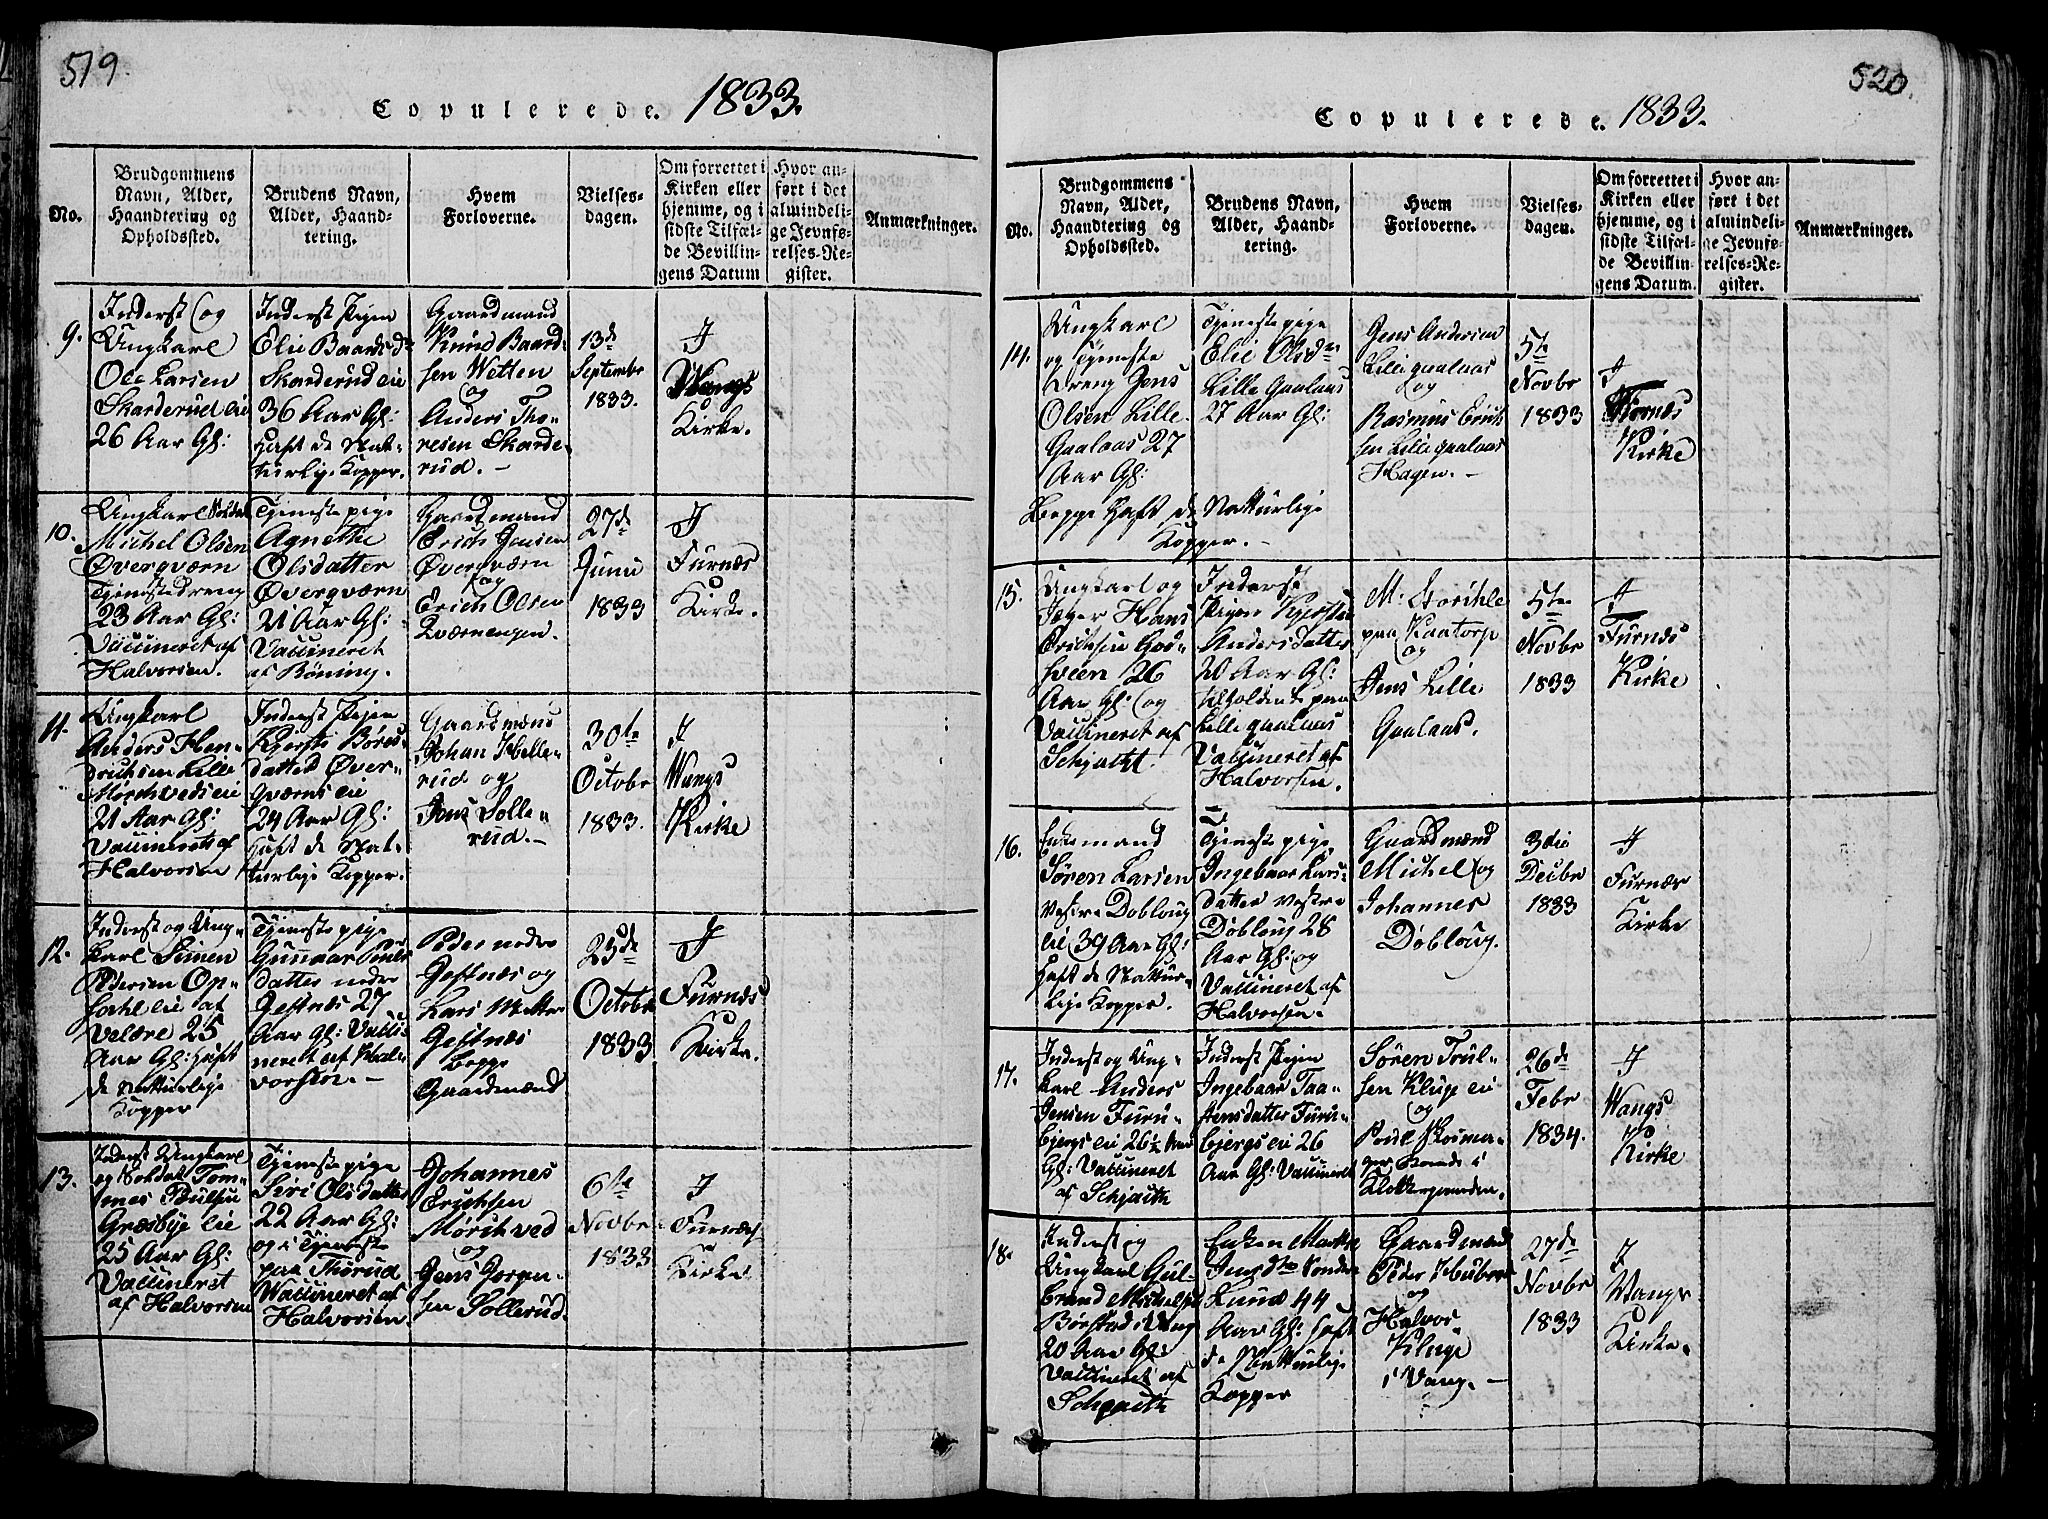 519.
Copulerede. 1833.
No.
Brudgommens
Navn, Alder,
Haandtering og
Opholdssted.
Brudens Navn,
Alder, Haand-
tering.
Hvem
Forloverne.
Vielses-
dagen.
Om forrettet i
Kirken eller
hjemme, og i
sidste Tilfæl-
de Bevillin-
gens Datum
Hvor an-
ført i det
almindeli-
ge Jevnfø-
relses-Re-
gister.
Anmærkninger.
9.
Inderst og
Ungkarl
Ole Larsen
Skarderud eie
26 Aar Gl:
Inderst Pigen
Elie Baardsdr
Skarderud eie
36 Aar Gl:
Haft de Nat-
turlige Kopper.
Gaardmænd
Knud Baard-
sen Wetten
og
Anders Tho-
resen Skarde-
rud. -
13de
September
1833.
I
Wangs
Kirke.
10.
Ungkarl Soldat
Michel Olsen
Øverqværn
Tjenestedreng
23 Aar Gl:
Vaccineret af
Halvorsen.
Tjenestepige
Agnethe
Olsdatter
Øverqværn
21 Aar Gl:
Vaccineret
af Røning.
Gaardmænd
Erich Jensen
Øverqværn
og
Erich Olsen
Qværnengen.
27de
Juni
1833
I
Furnæs
Kirke.
11.
Ungkarl
Anders Hen-
drichsen Lille
Mørchveds eie
21 Aar Gl:
Vaccineret af
Halvorsen
Inderst Pigen
Kjersti Børes-
datter Øver-
qværns eie
24 Aar Gl:
Haft de Nat-
turlige Kopper.
Gaardmænd
Johan Helle-
rud og
Jens Solle-
rud. -
30te
Octobr
1833.
I
Wangs
Kirke
12.
Inderst og Ung-
karl Simen
Pedersen Op-
sahl eie af
Veldre 25
Aar Gl: Haft
de Natturlige
Kopper
Tjenestepige
Gunnor
datter nedre
Jestnæs 27
Aar Gl: Vacci-
neret af Hal-
vorsen. -
Peder nedre
Jestnæs og
Lars
Jestnæs
begge
Gaardmænd
23de
Octobr
1833
I
Furnæs
Kirke.
13.
Inderst Ungkarl
og Soldat Tom-
mes Poulsen
Græsbye eie
25 Aar Gl:
Vaccineret
af Halvorsen
Tjenestepige
Siri Olsdatter
22 Aar Gl:
og i Tjeneste
paa Thorud
Vaccineret af
Halvorsen.
Johannes
Erichsen
Mørchved
og
Jens Jorgen-
sen Sollerud.
6te
Novbr
1833
I
Furnæs
Kirke.
520.
Copulerede. 1833.
No.
Brudgommens
Navn, Alder,
Haandtering og
Opholdssted.
Brudens Navn,
Alder, Haand-
tering.
Hvem
Forloverne.
Vielses-
dagen.
Om forrettet i
Kirken eller
hjemme, og i
sidste Tilfæl-
de Bevillin-
gens Datum.
Hvor an-
ført i det
almindeli-
ge Jevnfø-
relses-Re-
gister.
Anmærkninger.
14.
Ungkarl
og Tjeneste
Dreng Jens
Olsen Lille-
Gaalaas 27
Aar Gl:
Begge Haft de Natturlige
Kopper. -
Tjenestepige
Elie Olsdr
Lille Gaalaas
27 Aar Gl:
Jens Andersen
Lillegaalaas
og
Rasmus Erich-
sen Lillegaalaas
Hagen. -
5te
Novbr
1833
I
Furnæs
Kirke
15.
Ungkarl og
Jæger Hans
Erichsen
26
Aar Gl: og
Vaccineret af
Schjøtt.
Inderst
Pigen Kjersti
Anders Datter
20 Aar Gl:
paa
Lillegaalaas
Vaccineret af
Halvorsen.
M. Storihle
paa Kaatorp
og
Jens Lille
Gaalaas.
5te
Novbr
1833
I
Furnæs
Kirke
16.
Enkemand
Søren Larsen
Vestre Dobloug
eie 39 Aar Gl:
Haft de Nattur-
lige Kopper.
Tjenestepige
Ingebaar Lars-
datter Vestre
Dobloug 28
Aar Gl: og
Vaccineret af
Halvorsen.
Gaardmænd
Michel og
Johannes
Dobloug.
3die
Decbr
1833
I
Furnæs
Kirke
17.
Inderst og Ung-
karl Anders
Jensen Furu-
bjergs eie 26½ Aar
Gl: Vaccineret
af Schjøtt
Inderst Pigen
Ingebaar Taa-
stensdatter Furu-
bjergs eie 26
Aar Gl: Vaccineret
Søren Trul-
sen Kluge eie
og
Poul Skoma-
ger Boende i
Klokkergaarden.
26de
Febr
1834.
I
Wangs
Kirke
18.
Inderst og
Ungkarl Gul-
brand Michelsen
Børstad i Vang
20 Aar Gl:
Vaccineret af
Schjøtt
Enken Marthe
Jensdtr Sondre
Lund 44
Aar Gl: Haft
de Natturlige
Kopper
Gaardmænd
Peder Huuboer
og
Halvor
Kluge
i Vang. -
27de
Novbr
1833
I
Wangs
Kirke.